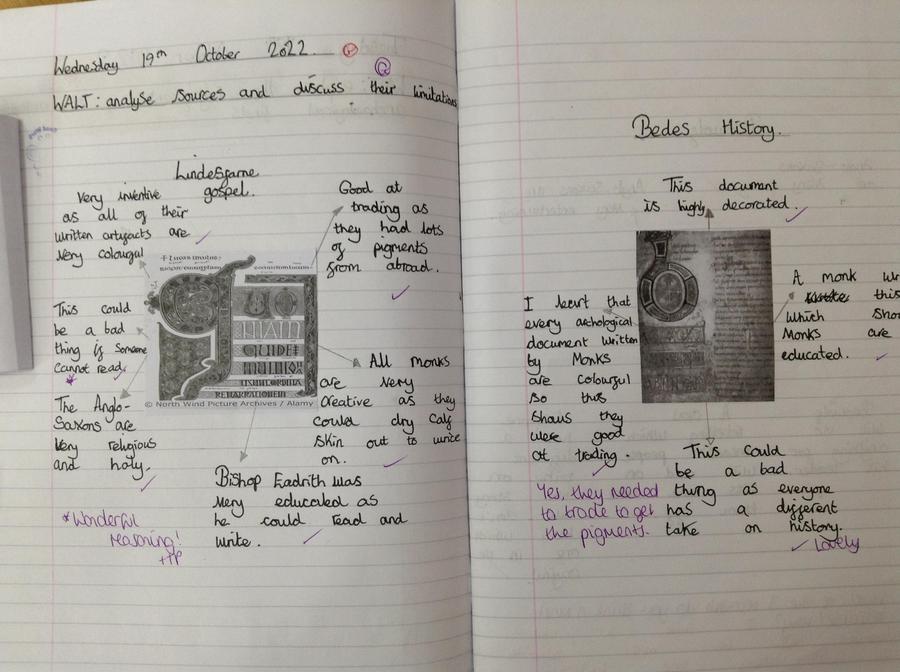 Wednesday 19th October 2022.
WALT: analyse sources and discuss their limitations
Lindesfarne
gospel.
Very inventive
as all of their
written artifacts are
very colourful
Good at
trading as
they had lots
of pigments
from abroad.
This could
be a bad
thing if someone
cannot read.
All monks
are very
creative as they
could dry calf
skin out to write
on.
© North Wind Picture Archives / Alamy
The Anglo-
Saxons are
very religious
and holy.
Bishop Eadrith was
very educated as
he could read and
write.
*Wonderful
reasoning!
Bedes History.
This document
is highly decorated.
I learnt that
every archological
document written
by Monks
are colourful
so this
shows they
were good
at trading.
A monk
this
which
Monks are
educated.
This could
be a bad
thing as everyone
has a different
take on history.
Yes, they needed
to trade to get
the pigments.
Lovely